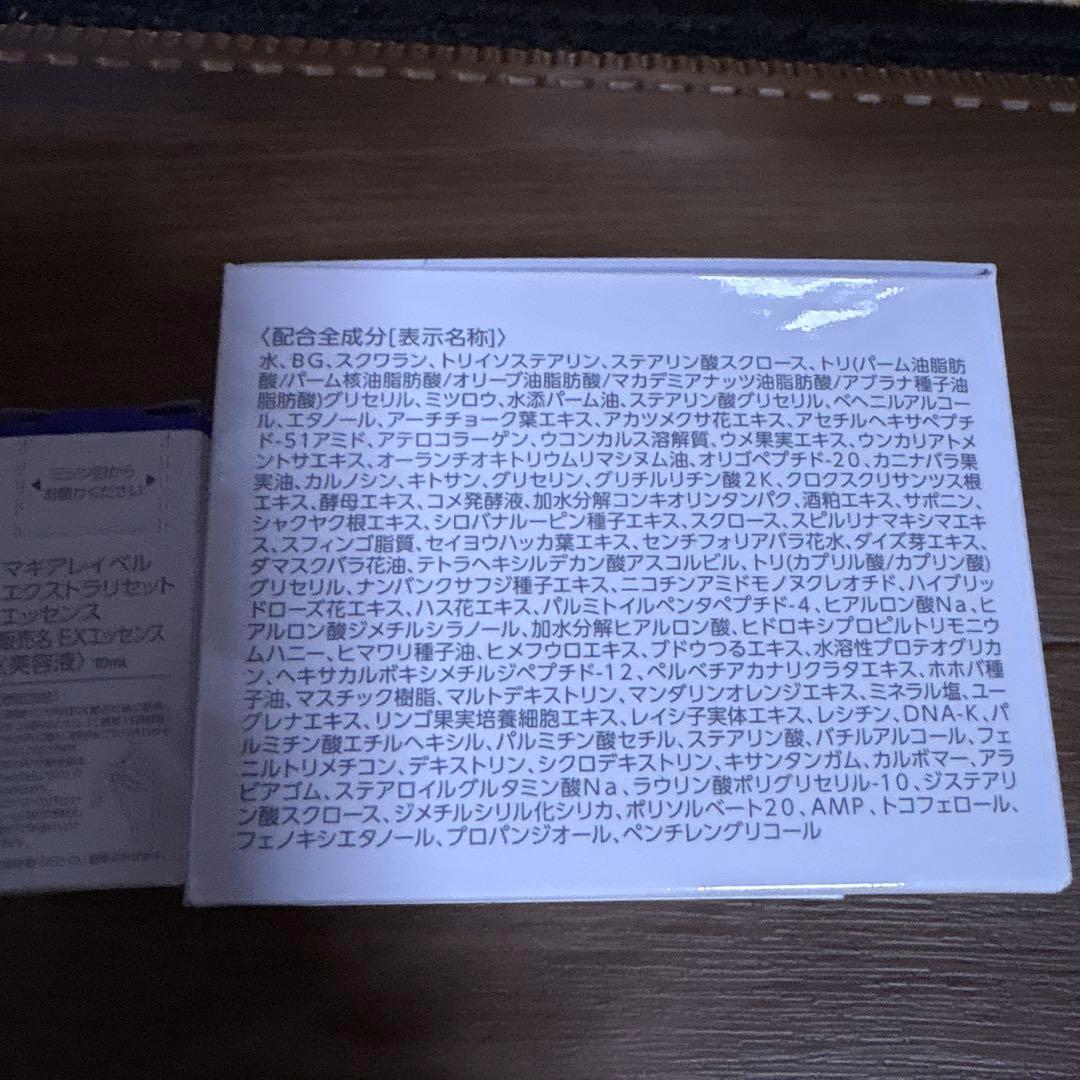 〈配合全成分[表示名称]〉
水、BG、スクワラン、トリイソステアリン、ステアリン酸スクロース、トリ(パーム油脂肪
酸/パーム核油脂肪酸/オリーブ油脂肪酸/マカデミアナッツ油脂肪酸/アブラナ種子油
脂肪酸)グリセリル、ミツロウ、水添パーム油、ステアリン酸グリセリル、ベヘニルアルコー
ル、エタノール、アーチチョーク葉エキス、アカツメクサ花エキス、アセチルヘキサペプチ
ド-51アミド、アテロコラーゲン、ウコンカルス溶解質、ウメ果実エキス、ウンカリアトメ
ントサエキス、オーランチオキトリウムリマシヌム油、オリゴペプチド-20、カニナバラ果
実油、カルノシン、キトサン、グリセリン、グリチルリチン酸2K、クロクスクリサンツス根
エキス、酵母エキス、コメ発酵液、加水分解コンキオリンタンパク、酒粕エキス、サポニン、
シャクヤク根エキス、シロバナルーピン種子エキス、スクロース、スピルリナマキシマエキ
ス、スフィンゴ脂質、セイヨウハッカ葉エキス、センチフォリアバラ花水、ダイズ芽エキス、
ダマスクバラ花油、テトラヘキシルデカン酸アスコルビル、トリ(カプリル酸/カプリン酸)
グリセリル、ナンバンクサフジ種子エキス、ニコチンアミドモノヌクレオチド、ハイブリッ
ドローズ花エキス、ハス花エキス、パルミトイルペンタペプチド-4、ヒアルロン酸Na、ヒ
アルロン酸ジメチルシラノール、加水分解ヒアルロン酸、ヒドロキシプロピルトリモニウ
ムハニー、ヒマワリ種子油、ヒメフウロエキス、ブドウつるエキス、水溶性プロテオグリカ
ン、ヘキサカルボキシメチルジペプチド-12、ペルベチアカナリクラタエキス、ホホバ種
子油、マスチック樹脂、マルトデキストリン、マンダリンオレンジエキス、ミネラル塩、ユー
グレナエキス、リンゴ果実培養細胞エキス、レイシ子実体エキス、レシチン、DNA-K、パ
ルミチン酸エチルヘキシル、パルミチン酸セチル、ステアリン酸、バチルアルコール、フェ
ニルトリメチコン、デキストリン、シクロデキストリン、キサンタンガム、カルボマー、アラ
ビアゴム、ステアロイルグルタミン酸Na、ラウリン酸ポリグリセリル-10、ジステアリ
ン酸スクロース、ジメチルシリル化シリカ、ポリソルベート20、AMP、トコフェロール、
フェノキシエタノール、プロパンジオール、ペンチレングリコール
ミシン目から
お開けください
マキアレイベル
エクストラリセット
エッセンス
販売名 EXエッセンス
〈美容液〉 10mL